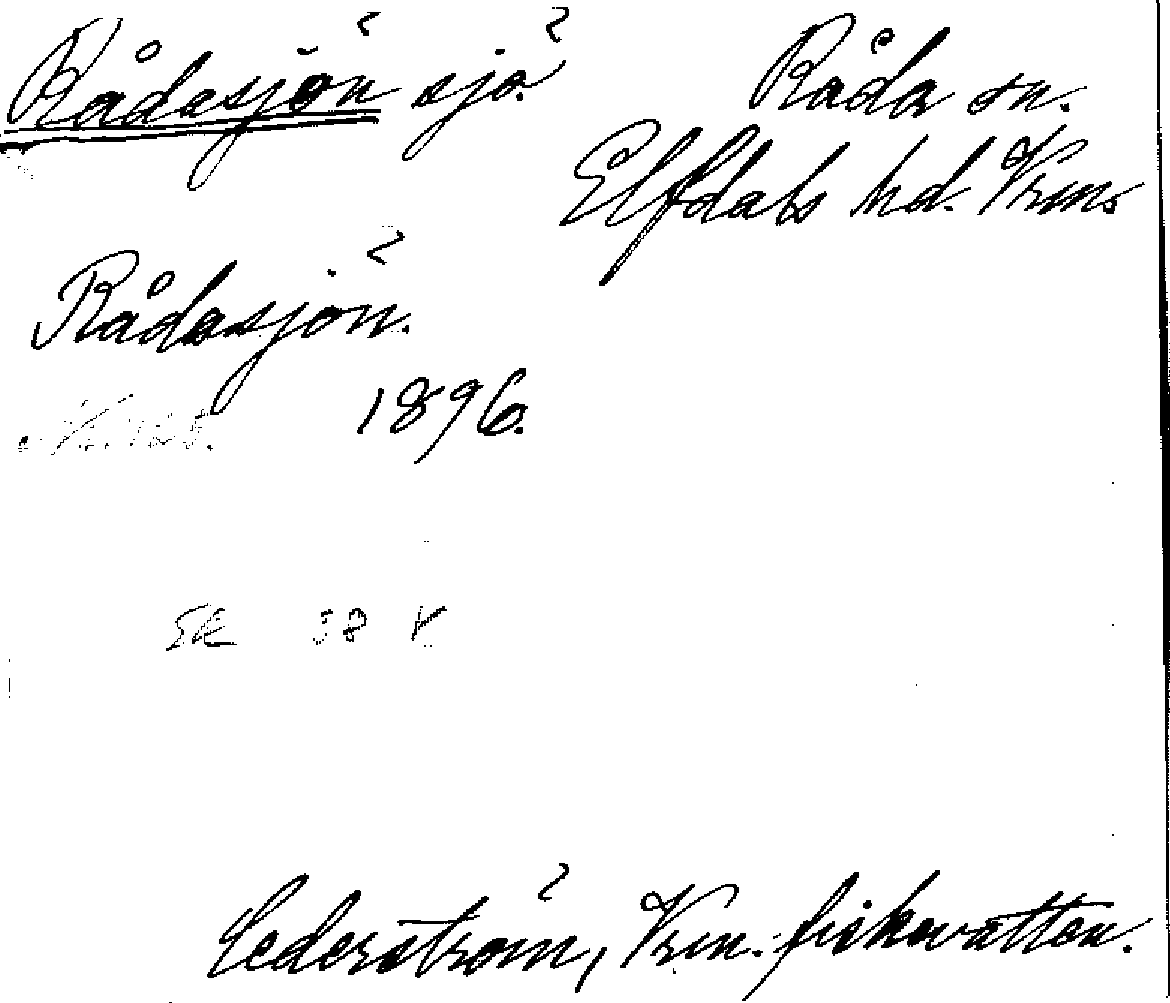 Rådasjön sjö. Råda sn.
Elfdals hd. Vrm.
Rådasjön.
1896.
SK 38 V
Cederström, Vrm. fiskevatten.